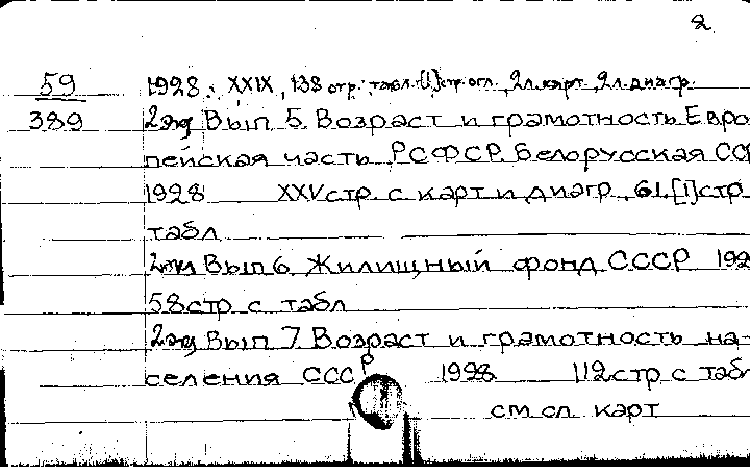 2
59 1928. XXIX, 138 стр. табл. [1] стр. огл., 2 л. карт., 2 л. диагр.
389 2 экз Вып 5. Возраст и грамотность Евро
пейская часть РСФСР. Белорусская ССР
1928 XXV стр. с карт и диагр, 61.[1] стр
табл
2 экз Вып 6. Жилищный фонд СССР 192
58 стр с табл
2 экз Вып 7. Возраст и грамотность на-
селения СССР 1928 112 стр с табл
см сл карт